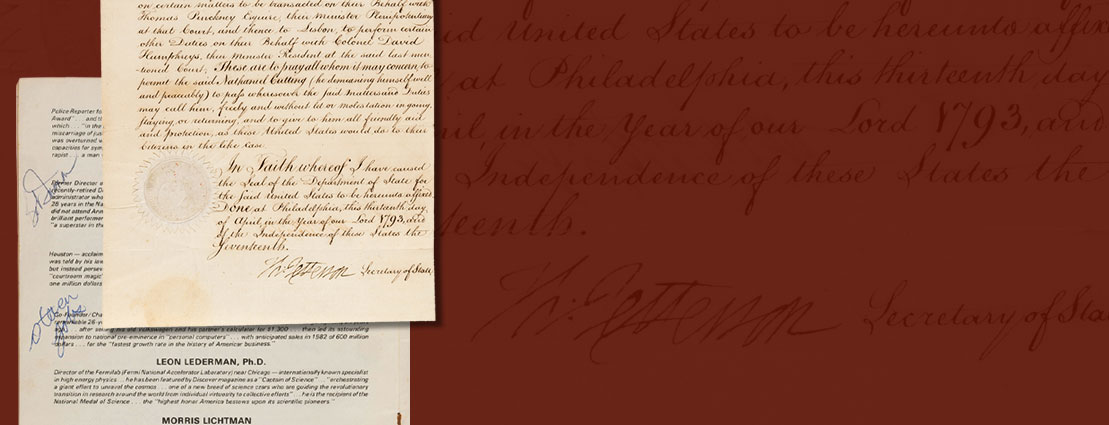 on certain matters to be transacted on their Behalf with
Thomas Pinckney Esquire, their Minister Plenipotentiary
at that Court, and thence to Lisbon, to perform certain
other Duties on their Behalf with Colonel David
Humphreys, their Minister Resident at the said last men
tioned Court; These are to pray all whom it may concern, to
permit the said Nathaniel Cutting (he demeaning himself well
and peaceably) to pass wheresoever the said Matters and Duties
may call him, freely and without let or molestation in going,
staying or returning, and to give to him all friendly aid
and Protection, as these United States would do to their
Citizens in the like Case.
In Faith whereof I have caused
the Seal of the Department of State for
the said United States to be hereunto affixed
Done at Philadelphia, this thirteenth day
of April, in the Year of our Lord 1793, and
of the Independence of these States the
Seventeenth.
Th: Jefferson Secretary of State
Police Reporter fo
Award" . . . and th
which . . . "in the
miscarriage of jus
was overturned w
capacities for sym
rapist . . . a man
Former Director o
recently-retired D
administrator who
28 years in the Na
did not attend Ann
brilliant performer
"a superstar in the
Houston — acclaim
was told by his law
but instead persev
"courtroom magic"
one million dollars
steven
jobs
Co-Founder/Cha
remarkable 26-y
. . . after selling his old Volkswagen and his partner's calculator for $1,300 . . . then led its astounding
expansion to national pre-eminence in "personal computers" . . . with anticipated sales in 1982 of 600 million
dollars . . . for the "fastest growth rate in the history of American business."
LEON LEDERMAN, Ph.D.
Director of the Fermilab (Fermi National Accelerator Laboratory) near Chicago — internationally known specialist
in high energy physics . . . he has been featured by Discover magazine as a "Captain of Science" . . . "orchestrating
a giant effort to unravel the cosmos . . . one of a new breed of science czars who are guiding the revolutionary
transition in research around the world from individual virtuosity to collective efforts" . . . he is the recipient of the
National Medal of Science . . . the "highest honor America bestows upon its scientific pioneers."
MORRIS LICHTMAN
id United States to be hereunto affix
at Philadelphia, this thirteenth day
il, in the Year of our Lord 1793, and
Independence of these States the
teenth.
Th: Jefferson Secretary of Sta